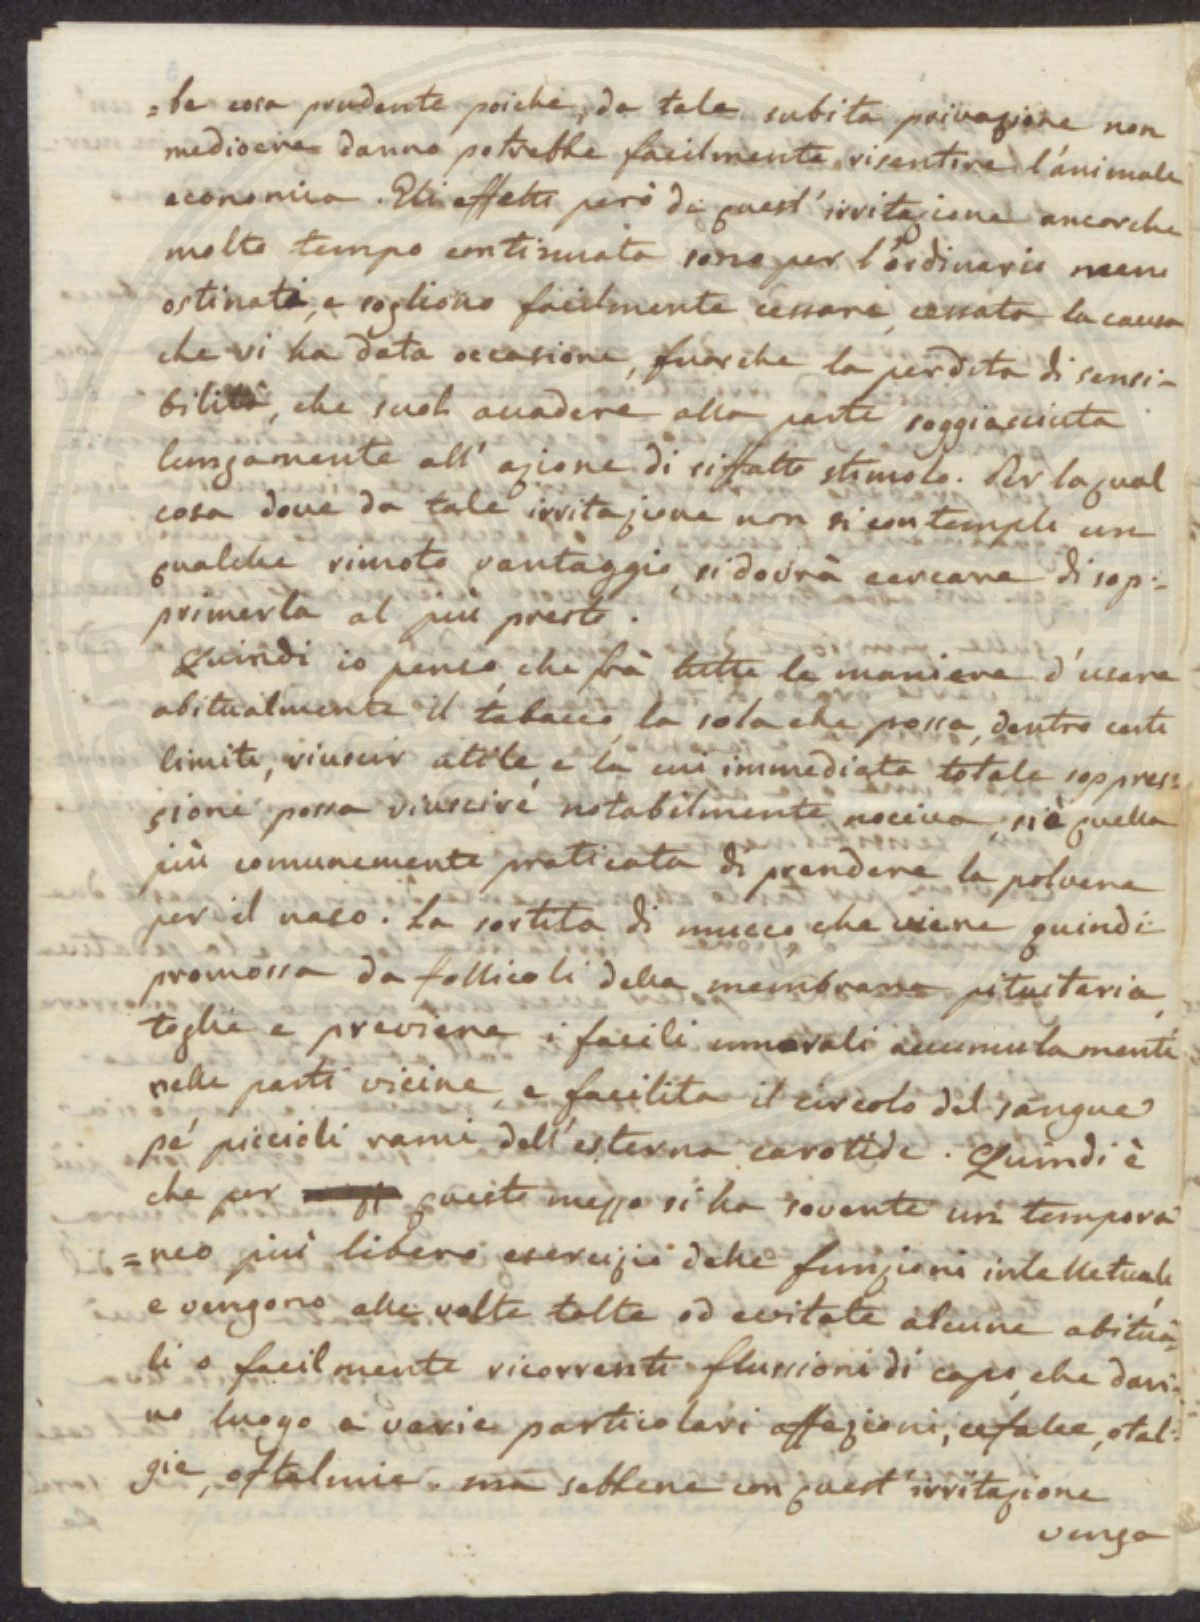 =be cosa prudente poiche, da tale subita privazione non
mediocre danno potrebbe facilmente risentire l'animale
economia. Gli effetti però di quest'irritazione ancorche
molto tempo continuata sono per l'ordinario meno
ostinati, e sogliono facilmente cessare, cessata la causa
che vi ha data occasione, fuorche la perdita di sensi-
bilità, che suole accadere alla parte soggiaciuta
lungamente all'azione di siffatto stimolo. Per la qual
cosa dove da tale irritazione non si contempli un
qualche rimoto vantaggio si dovrà cercare di sop:-
primerla al più presto.
Quindi io penso, che frà tutte le maniere d'usare
abitualmente il tabacco, la sola che possa, dentro certi
limiti, riuscir utile, e la cui immediata totale soppres:-
sione possa riuscire notabilmente nociva, si è quella
più comunemente praticata di prendere la polvere
per il naso. La sortita di mucco che viene quindi
promossa da follicoli della membrana pituitaria,
toglie e previene i facili umorali accumulamenti
nelle parti vicine, e facilita il circolo del sangue
pe' piccioli rami dell'esterna carotide. Quindi è
che per questo mezzo si ha sovente un tempora
=neo più libero esercizio delle funzioni intellettuali,
e vengono alle volte tolte od evitate alcune abitua-
li o facilmente ricorrenti flussioni di capo, che dan:-
no luogo a varie particolari affezioni, cefalee, otal:-
gie, oftalmie. ma sebbene con quest'irritazione
venga